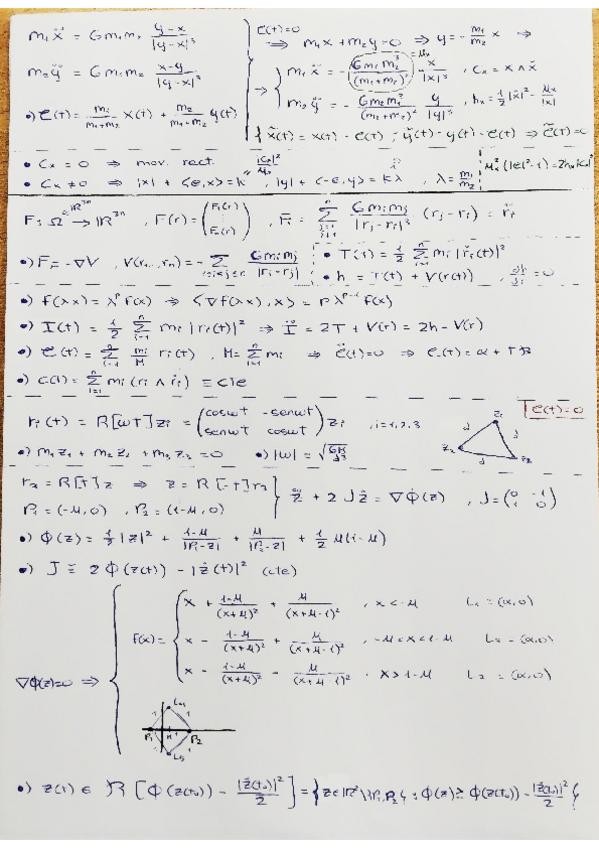 m₁ẍ = G m₁m₂ (y-x)/|y-x|³
m₂ÿ = G m₁m₂ (x-y)/|y-x|³
•) C(t) = m₁/(m₁+m₂) x(t) + m₂/(m₁+m₂) y(t)
C(t)=0 ⇒ m₁x + m₂y = 0 ⇒ y = - m₁/m₂ x ⇒
⇒ { m₁ẍ = - (G m₁m₂³)/(m₁+m₂)² x/|x|³ , Cₓ = x ∧ ẋ
m₂ÿ = - (G m₂m₁³)/(m₁+m₂)² y/|y|³ , hₓ = 1/2 |ẋ|² - μₓ/|x|
{ x̃(t) = x(t) - C(t) ; ỹ(t) = y(t) - C(t) ⇒ C̃(t)=0
• Cₓ = 0 ⇒ mov. rect.
• Cₓ ≠ 0 ⇒ |x| + <e,x> = k , |y| + <-e,y> = kλ , λ = m₁/m₂
|Cₓ|²/μₓ
μₓ²(|e|²-1) = 2hₓ|Cₓ|²
F: Ω ⊂ ℝ³ⁿ → ℝ³ⁿ , F(r) = (F₁(r) ⋮ Fₙ(r)) , Fᵢ = Σ G mᵢmⱼ/|rⱼ-rᵢ|³ (rⱼ-rᵢ) = r̈ᵢ
•) F = -∇V , V(r₁,..,rₙ) = - Σ 1≤i<j≤n G mᵢmⱼ/|rᵢ-rⱼ|
• T(t) = 1/2 Σ mᵢ |ṙᵢ(t)|²
• h = T(t) + V(r(t)) , dh/dt = 0
•) f(λx) = λᵖ f(x) ⇒ <∇f(λx), x> = p λᵖ⁻¹ f(x)
•) I(t) = 1/2 Σ mᵢ |rᵢ(t)|² ⇒ Ï = 2T + V(r) = 2h - V(r)
•) C(t) = Σ mᵢ/M rᵢ(t) , M = Σ mᵢ ⇒ C̈(t)=0 ⇒ C(t) = α + tβ
•) c(t) = Σ mᵢ (rᵢ ∧ ṙᵢ) ≡ cte
C(t)=0
rᵢ(t) = R[ωt] zᵢ = (cosωt -senωt senωt cosωt) zᵢ , i=1,2,3
z₁
z₂
z₃
d
d
d
•) m₁z₁ + m₂z₂ + m₃z₃ = 0 •) |ω| = √(GM/d³)
r₃ = R[t] z ⇒ z = R[-t] r₃ } z̈ + 2Jż = ∇Φ(z) , J = (0 -1 1 0)
P₁ = (-μ,0) , P₂ = (1-μ,0)
•) Φ(z) = 1/2 |z|² + (1-μ)/|P₁-z| + μ/|P₂-z| + 1/2 μ(1-μ)
•) J ≡ 2Φ(z(t)) - |ż(t)|² (cte)
∇Φ(z)=0 ⇒
f(x) = { x + (1-μ)/(x+μ)² + μ/(x+μ-1)² , x<-μ L₁ = (α,0)
x - (1-μ)/(x+μ)² + μ/(x+μ-1)² , -μ<x<1-μ L₂ = (α,0)
x - (1-μ)/(x+μ)² - μ/(x+μ-1)² , x>1-μ L₃ = (α,0)
L₄
P₁
P₂
L₅
•) z(t) ∈ R[Φ(z(t₀)) - |ż(t₀)|²/2] = {z∈ℝ²\{P₁,P₂} : Φ(z) ≥ Φ(z(t₀)) - |ż(t₀)|²/2}